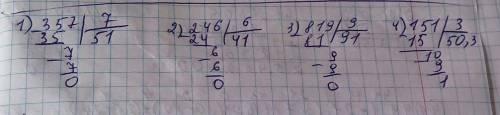 1) 357 | 7 2) 246 | 6 3) 819 | 9 4) 151 | 3
35 | 51 24 | 41 81 | 91 15 | 50,3
- 7 - 6 - 9 - 10
7 6 9 9
0 0 0 1